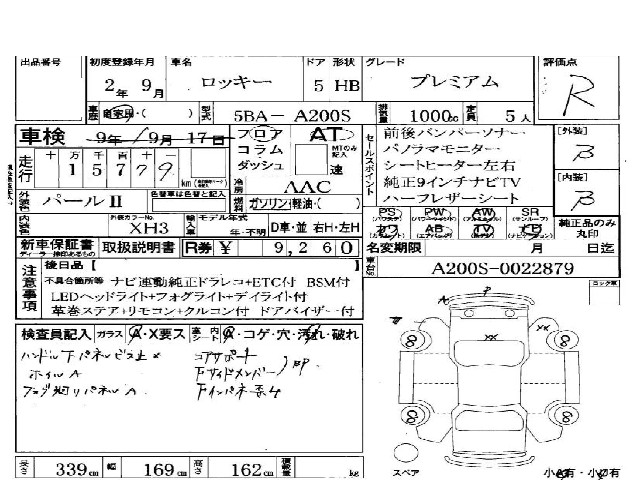 出品番号 初度登録年月 車名 ドア 形状 グレード 評価点
2年 9月 ロッキー 5 HB プレミアム R
車歴 自家用・( ) 型式 5BA- A200S 排気量 1000cc 定員 5人
車検 9年 9月 17日 フロア AT セールスポイント 前後バンパーソナー [外装]
コラム MTのみ記入 パノラマモニター B
走行 十万千百十一 15779 km ダッシュ 速 シートヒーター左右 [内装]
冷房 AAC 純正9インチナビTV B
外装色 パールⅡ 色替車は色替と記入 燃料 ガソリン 軽油・( ) ハーフレザーシート
内装色 外装カラーNo. XH3 輸入車 モデル年式 年・不明 D車・並 右H・左H PS PW AW SR 純正品のみ丸印
カワ AB TV ナビ
新車保証書 取扱説明書 R券 ¥ 9,260 名変期限 月 日迄
注意事項 後日品【 車台No. A200S-0022879
不具合箇所等 ナビ連動純正ドラレコ+ETC付 BSM付
LEDヘッドライト+フォグライト+デイライト付
革巻ステア+リモコン+クルコン付 ドアバイザー付
検査員記入 ガラス A・X要ス 車内シート A・コゲ・穴・汚れ・破れ
ハンドル下パネルビス止× コアサポート
ホイルA 下サイドメンバー
長さ 339cm 幅 169cm 高さ 162cm 積載量 kg
スペア